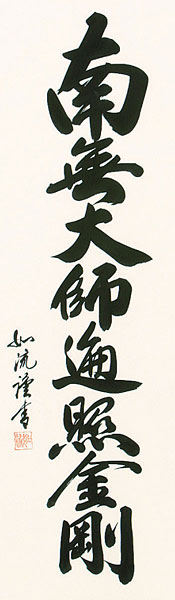 南無大師遍照金剛
如流謹書